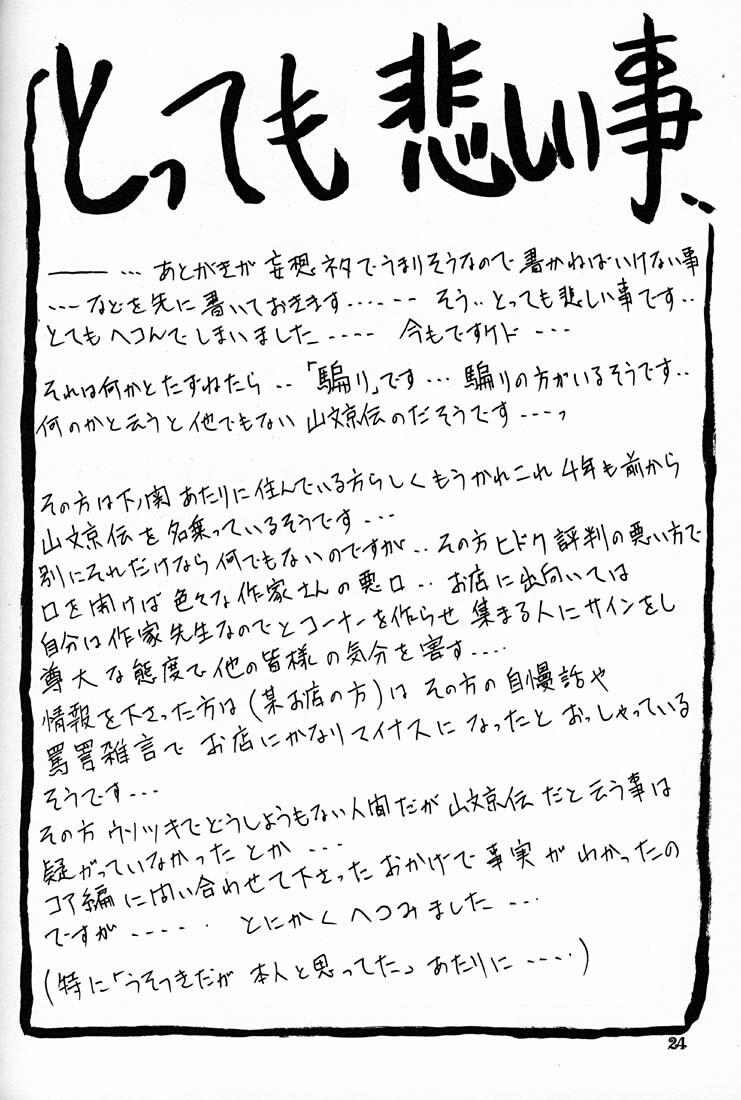 とっても悲しい事‥
―― … あとがきが 妄想ネタでうまりそうなので 書かねばいけない事
---- などを先に書いておきます‥‥-- そう‥とっても悲しい事です‥
とてもヘコんでしまいました ---- 今もですケド ---
それは何かとたずねたら ‥「騙り」です… 騙りの方がいるそうです‥
何のかと云うと他でもない 山文京伝のだそうです ---っ
その方は下ノ関 あたりに住んでいる方らしく もうかれこれ 4年も前から
山文京伝を名乗っているそうです ---
別にそれだけなら何でもないのですが‥ その方ヒドク評判の悪い方で
口を開けば 色々な作家さんの悪口‥ お店に出向いては
自分は作家先生なのでとコーナーを作らせ 集まる人にサインをし
尊大な態度で他の皆様の気分を害す‥‥
情報を下さった方は(某お店の方)は その方の自慢話や
罵詈雑言で お店にかなりマイナスに なったと おっしゃっている
そうです ---
その方 ウソツキでどうしようもない人間だが 山文京伝 だと云う事は
疑がっていなかったとか ---
コア編に問い合わせて下さった おかげで 事実が わかったの
ですが ----・ とにかく へコみました ---
(特に「うそつきだが 本人と思ってた」あたりに ----)
24